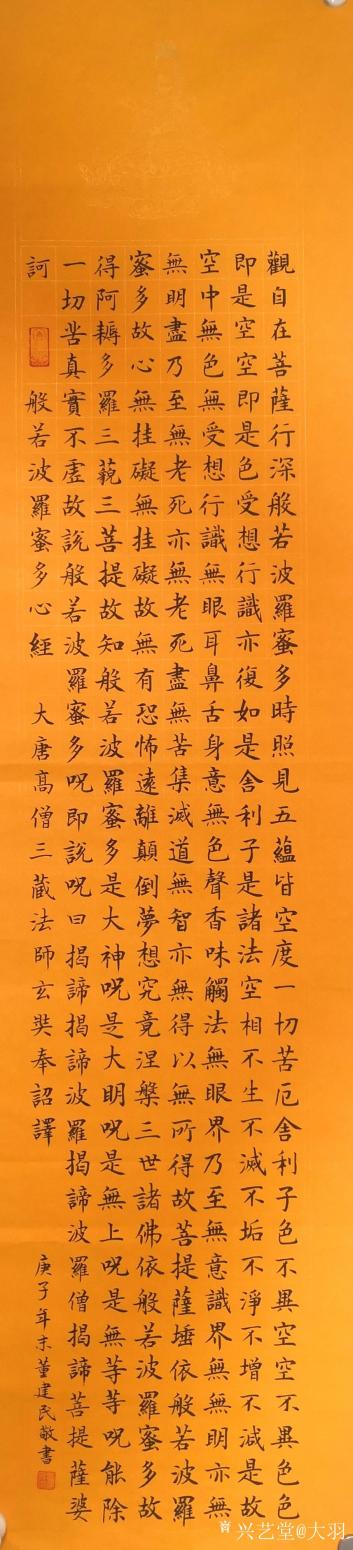 觀自在菩薩行深般若波羅蜜多時照見五蘊皆空度一切苦厄舍利子色不異空空不異色色
即是空空即是色受想行識亦復如是舍利子是諸法空相不生不滅不垢不淨不增不減是故
空中無色無受想行識無眼耳鼻舌身意無色聲香味觸法無眼界乃至無意識界無無明亦無
無明盡乃至無老死亦無老死盡無苦集滅道無智亦無得以無所得故菩提薩埵依般若波羅
蜜多故心無挂礙無挂礙故無有恐怖遠離顛倒夢想究竟涅槃三世諸佛依般若波羅蜜多故
得阿耨多羅三藐三菩提故知般若波羅蜜多是大神呪是大明呪是無上呪是無等等呪能除
一切苦真實不虛故說般若波羅蜜多呪即說呪曰揭諦揭諦波羅揭諦波羅僧揭諦菩提薩婆
訶 般若波羅蜜多心經 大唐髙僧三藏法師玄奘奉詔譯
庚子年末董建民敬書
兴艺堂@大羽